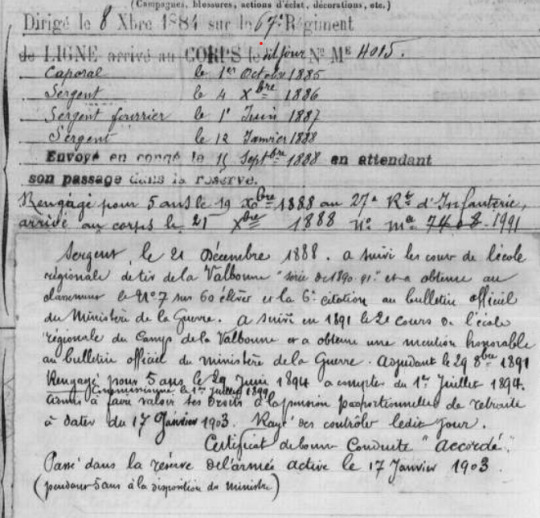 (Campagnes, blessures, actions d'éclat, décorations, etc.)
Dirigé le 8 Xbre 1884 sur le 67e Régiment
de LIGNE arrivé au CORPS le dit jour No Mle 4015.
Caporal le 1er Octobre 1885
Sergent le 4 Xbre 1886
Sergent fourrier le 1er Juin 1887
Sergent le 12 Janvier 1888
Envoyé en congé le 15 Septbre 1888 en attendant
son passage dans la réserve.
Rengagé pour 5 ans le 19 Xbre 1888 au 27e Rt d'Infanterie,
arrivé au corps le 21 Xbre 1888 no ma 7408. 1991
Sergent, le 21 Décembre 1888. a suivi les cour de l'école
régionale de tir de la Valbonne "série de 1890-91" et a obtenu au
classement le No 7 sur 60 élèves et la 6e citation au bulletin officiel
du Ministère de la Guerre. a suivi en 1891 le 2e cours de l'école
régionale du Camp de la Valbonne et a obtenu une mention honorable
au bulletin officiel du ministère de la Guerre. Adjudant le 29 8bre 1891
Rengagé pour 5 ans le 29 Juin 1894 a compter du 1er Juillet 1894.
Commissionné le 1er Juillet 1899
Admis à faire valoir ses droits à la pension proportionnelle de retraite
à dater du 17 Janvier 1903. Rayé des contrôle ledit jour.
Certificat de bonne Conduite "Accordé".
Passé dans la réserve de l'armée active le 17 Janvier 1903.
(pendant 5 ans à la disposition du ministre)